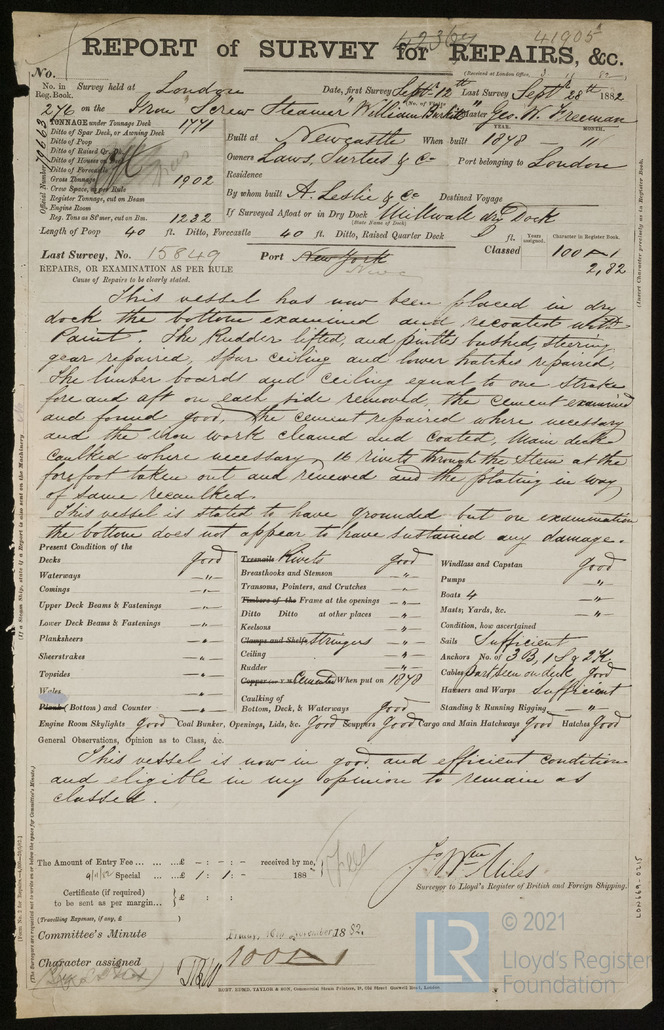 42364
41905
REPORT of SURVEY for REPAIRS, &c.
(Received at London Office,
No.
No. in Reg. Book. Survey held at London Date, first Survey Sept. 12th Last Survey Sept. 28th 1882
276 on the Iron Screw Steamer "William Burkitt" Master Geo. W. Freeman
TONNAGE under Tonnage Deck 1771
Ditto of Spar Deck, or Awning Deck
Ditto of Poop
Ditto of Raised Qr. Dk.
Ditto of Houses on Deck
Ditto of Forecastle
Gross Tonnage 1902
Crew Space, as per Rule
Register Tonnage, cut on Beam
Engine Room
Reg. Tons as St'mer, cut on Bm. 1232
Official Number
YEAR. MONTH.
Built at Newcastle When built 1878 "
Owners Laws, Surtees & Co Port belonging to London
Residence
By whom built A. Leslie & Co Destined Voyage
If Surveyed Afloat or in Dry Dock Millwall dry Dock
(State Name of Dock)
Length of Poop 40 ft. Ditto, Forecastle 40 ft. Ditto, Raised Quarter Deck ft.
Years assigned. Character in Register Book.
Last Survey, No. 15849 Port New York Classed 100 A 1
Newc
2,82
REPAIRS, OR EXAMINATION AS PER RULE
Cause of Repairs to be clearly stated.
This vessel has now been placed in dry
dock the bottom examined and recoated with
Paint. The Rudder lifted, and pintles bushed, steering
gear repaired, spar ceiling and lower hatches repaired,
The limber boards and ceiling equal to one strake
fore and aft on each side removed, the cement examined
and found good, the cement repaired where necessary
and the iron work cleaned and coated, Main decks
caulked where necessary, 16 rivets through the Stem at the
forefoot taken out and renewed and the plating in way
of same recaulked.
This vessel is stated to have grounded but on examination
the bottom does not appear to have sustained any damage.
Present Condition of the
Decks Good
Waterways — " —
Comings — " —
Upper Deck Beams & Fastenings — " —
Lower Deck Beams & Fastenings — " —
Planksheers — " —
Sheerstrakes — " —
Topsides — " —
Wales — " —
Plank (Bottom) and Counter — " —
Treenails Rivets Good
Breasthooks and Stemson — " —
Transoms, Pointers, and Crutches — " —
Timbers of the Frame at the openings — " —
Ditto Ditto at other places — " —
Keelsons — " —
Clamps and Shelfs Stringers — " —
Ceiling — " —
Rudder — " —
Copper (or Y.M.) Cemented When put on 1878
Caulking of Bottom, Deck, & Waterways Good
Windlass and Capstan Good
Pumps — " —
Boats 4 — " —
Masts, Yards, &c. — " —
Condition, how ascertained
Sails Sufficient
Anchors No. of 3 B, 1 S & 2 K.
Cables part seen on deck Good
Hawsers and Warps Sufficient
Standing & Running Rigging — " —
Engine Room Skylights Good Coal Bunker, Openings, Lids, &c. Good Scuppers Good Cargo and Main Hatchways Good Hatches Good
General Observations, Opinion as to Class, &c.
This vessel is now in good and efficient condition
and eligible in my opinion to remain as
classed.
The Amount of Entry Fee ... ... ... £ - : - : - received by me,
Special ... £ 1 : 1 : - 188
Certificate (if required) to be sent as per margin... } £ : :
(Travelling Expenses, if any, £ )
Jo Wm Miles
Surveyor to Lloyd's Register of British and Foreign Shipping.
Committee's Minute Friday, 10th November 1882.
Character assigned 100 A 1
ROBT. EDMD. TAYLOR & SON, Commercial Steam Printers, 19, Old Street Goswell Road, London
(If a Steam Ship, state if a Report is also sent on the Machinery
(The Surveyors are requested not to write on or below the space for Committee's Minute.)
(Insert Character precisely as in Register Book.)
LON669-0215
LR
© 2021
Lloyd's Register
Foundation